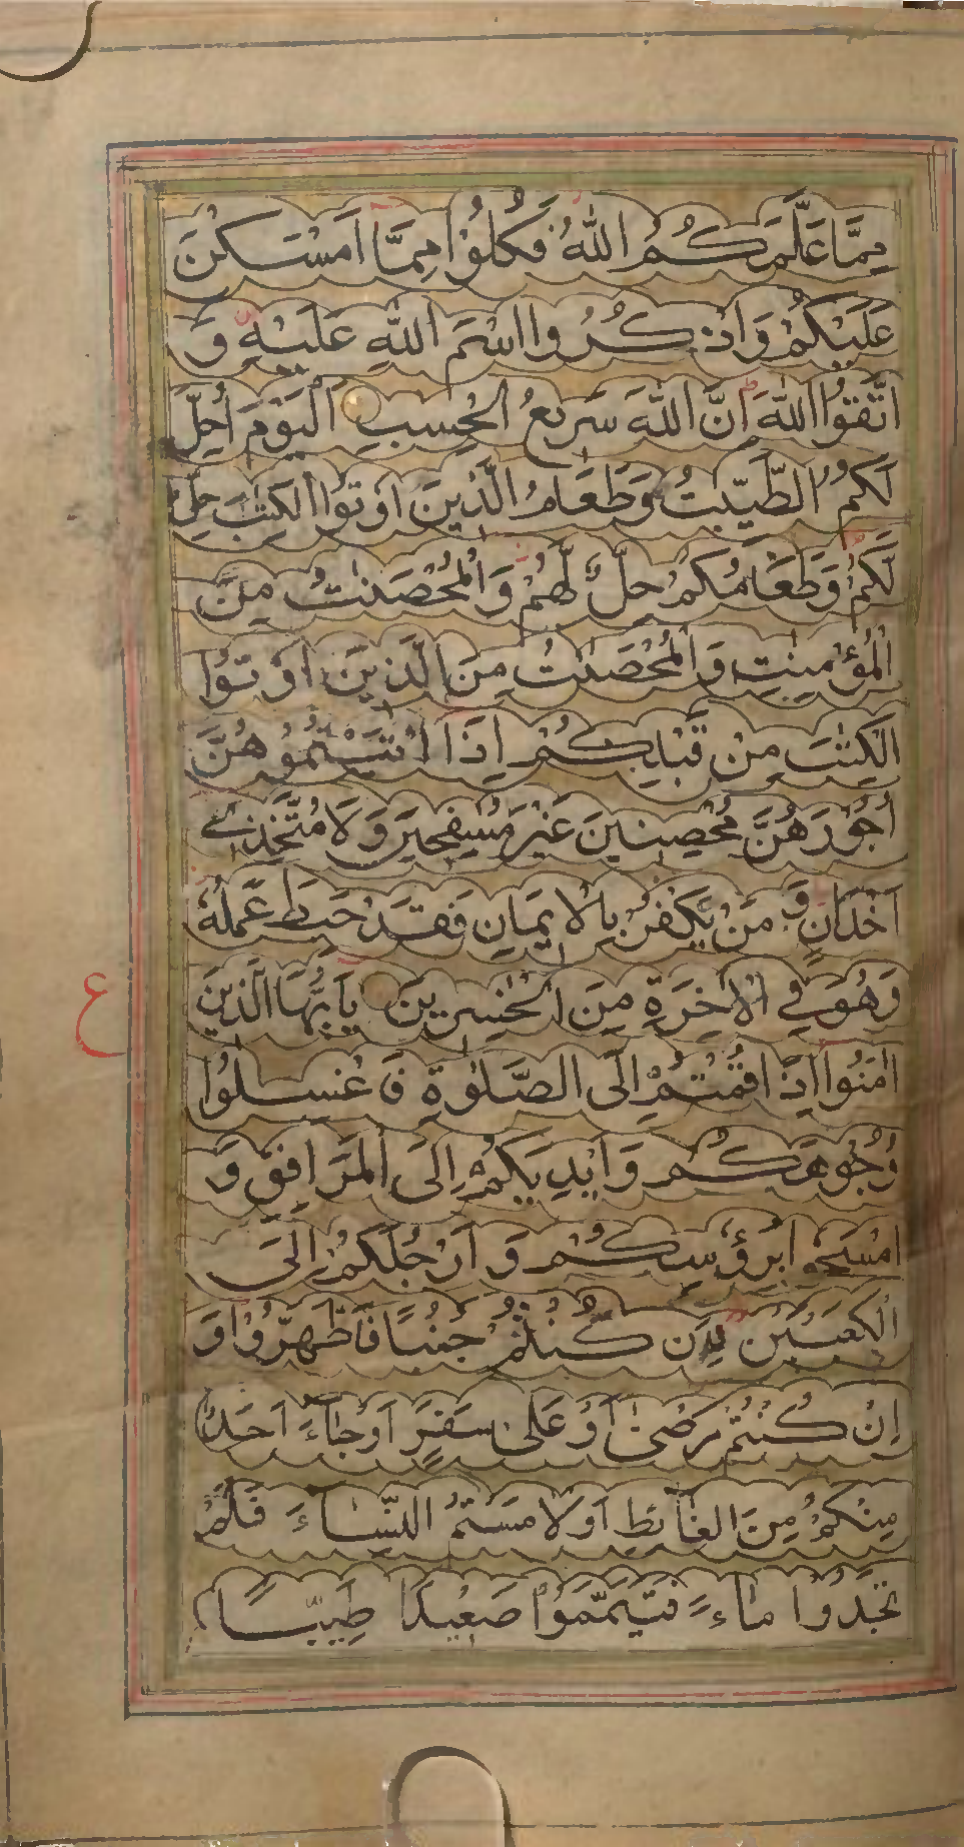 مِمَّا عَلَّمَكُمُ اللّٰهُ فَكُلُوْا مِمَّا اَمْسَكْنَ
عَلَيْكُمْ وَاذْكُرُوا اسْمَ اللّٰهِ عَلَيْهِ وَ
اتَّقُوا اللّٰهَ اِنَّ اللّٰهَ سَرِيْعُ الْحِسٰبِ اَلْيَوْمَ اُحِلَّ
لَكُمُ الطَّيِّبٰتُ وَطَعَامُ الَّذِيْنَ اُوْتُوا الْكِتٰبَ حِلٌّ
لَّكُمْ وَطَعَامُكُمْ حِلٌّ لَّهُمْ وَالْمُحْصَنٰتُ مِنَ
الْمُؤْمِنٰتِ وَالْمُحْصَنٰتُ مِنَ الَّذِيْنَ اُوْتُوا
الْكِتٰبَ مِنْ قَبْلِكُمْ اِذَا اٰتَيْتُمُوْهُنَّ
اُجُوْرَهُنَّ مُحْصِنِيْنَ غَيْرَ مُسٰفِحِيْنَ وَلَا مُتَّخِذِيْ
اَخْدَانٍ وَمَنْ يَّكْفُرْ بِالْاِيْمَانِ فَقَدْ حَبِطَ عَمَلُهٗ
وَهُوَ فِي الْاٰخِرَةِ مِنَ الْخٰسِرِيْنَ يٰاَيُّهَا الَّذِيْنَ
ع
اٰمَنُوا اِذَا قُمْتُمْ اِلَى الصَّلٰوةِ فَاغْسِلُوْا
وُجُوْهَكُمْ وَاَيْدِيَكُمْ اِلَى الْمَرَافِقِ وَ
امْسَحُوْا بِرُءُوْسِكُمْ وَاَرْجُلَكُمْ اِلَى
الْكَعْبَيْنِ وَاِنْ كُنْتُمْ جُنُبًا فَاطَّهَّرُوْا وَ
اِنْ كُنْتُمْ مَرْضٰى اَوْ عَلٰى سَفَرٍ اَوْ جَاءَ اَحَدٌ
مِنْكُمْ مِنَ الْغَائِطِ اَوْ لَامَسْتُمُ النِّسَاءَ فَلَمْ
تَجِدُوْا مَاءً فَتَيَمَّمُوْا صَعِيْدًا طَيِّبًا